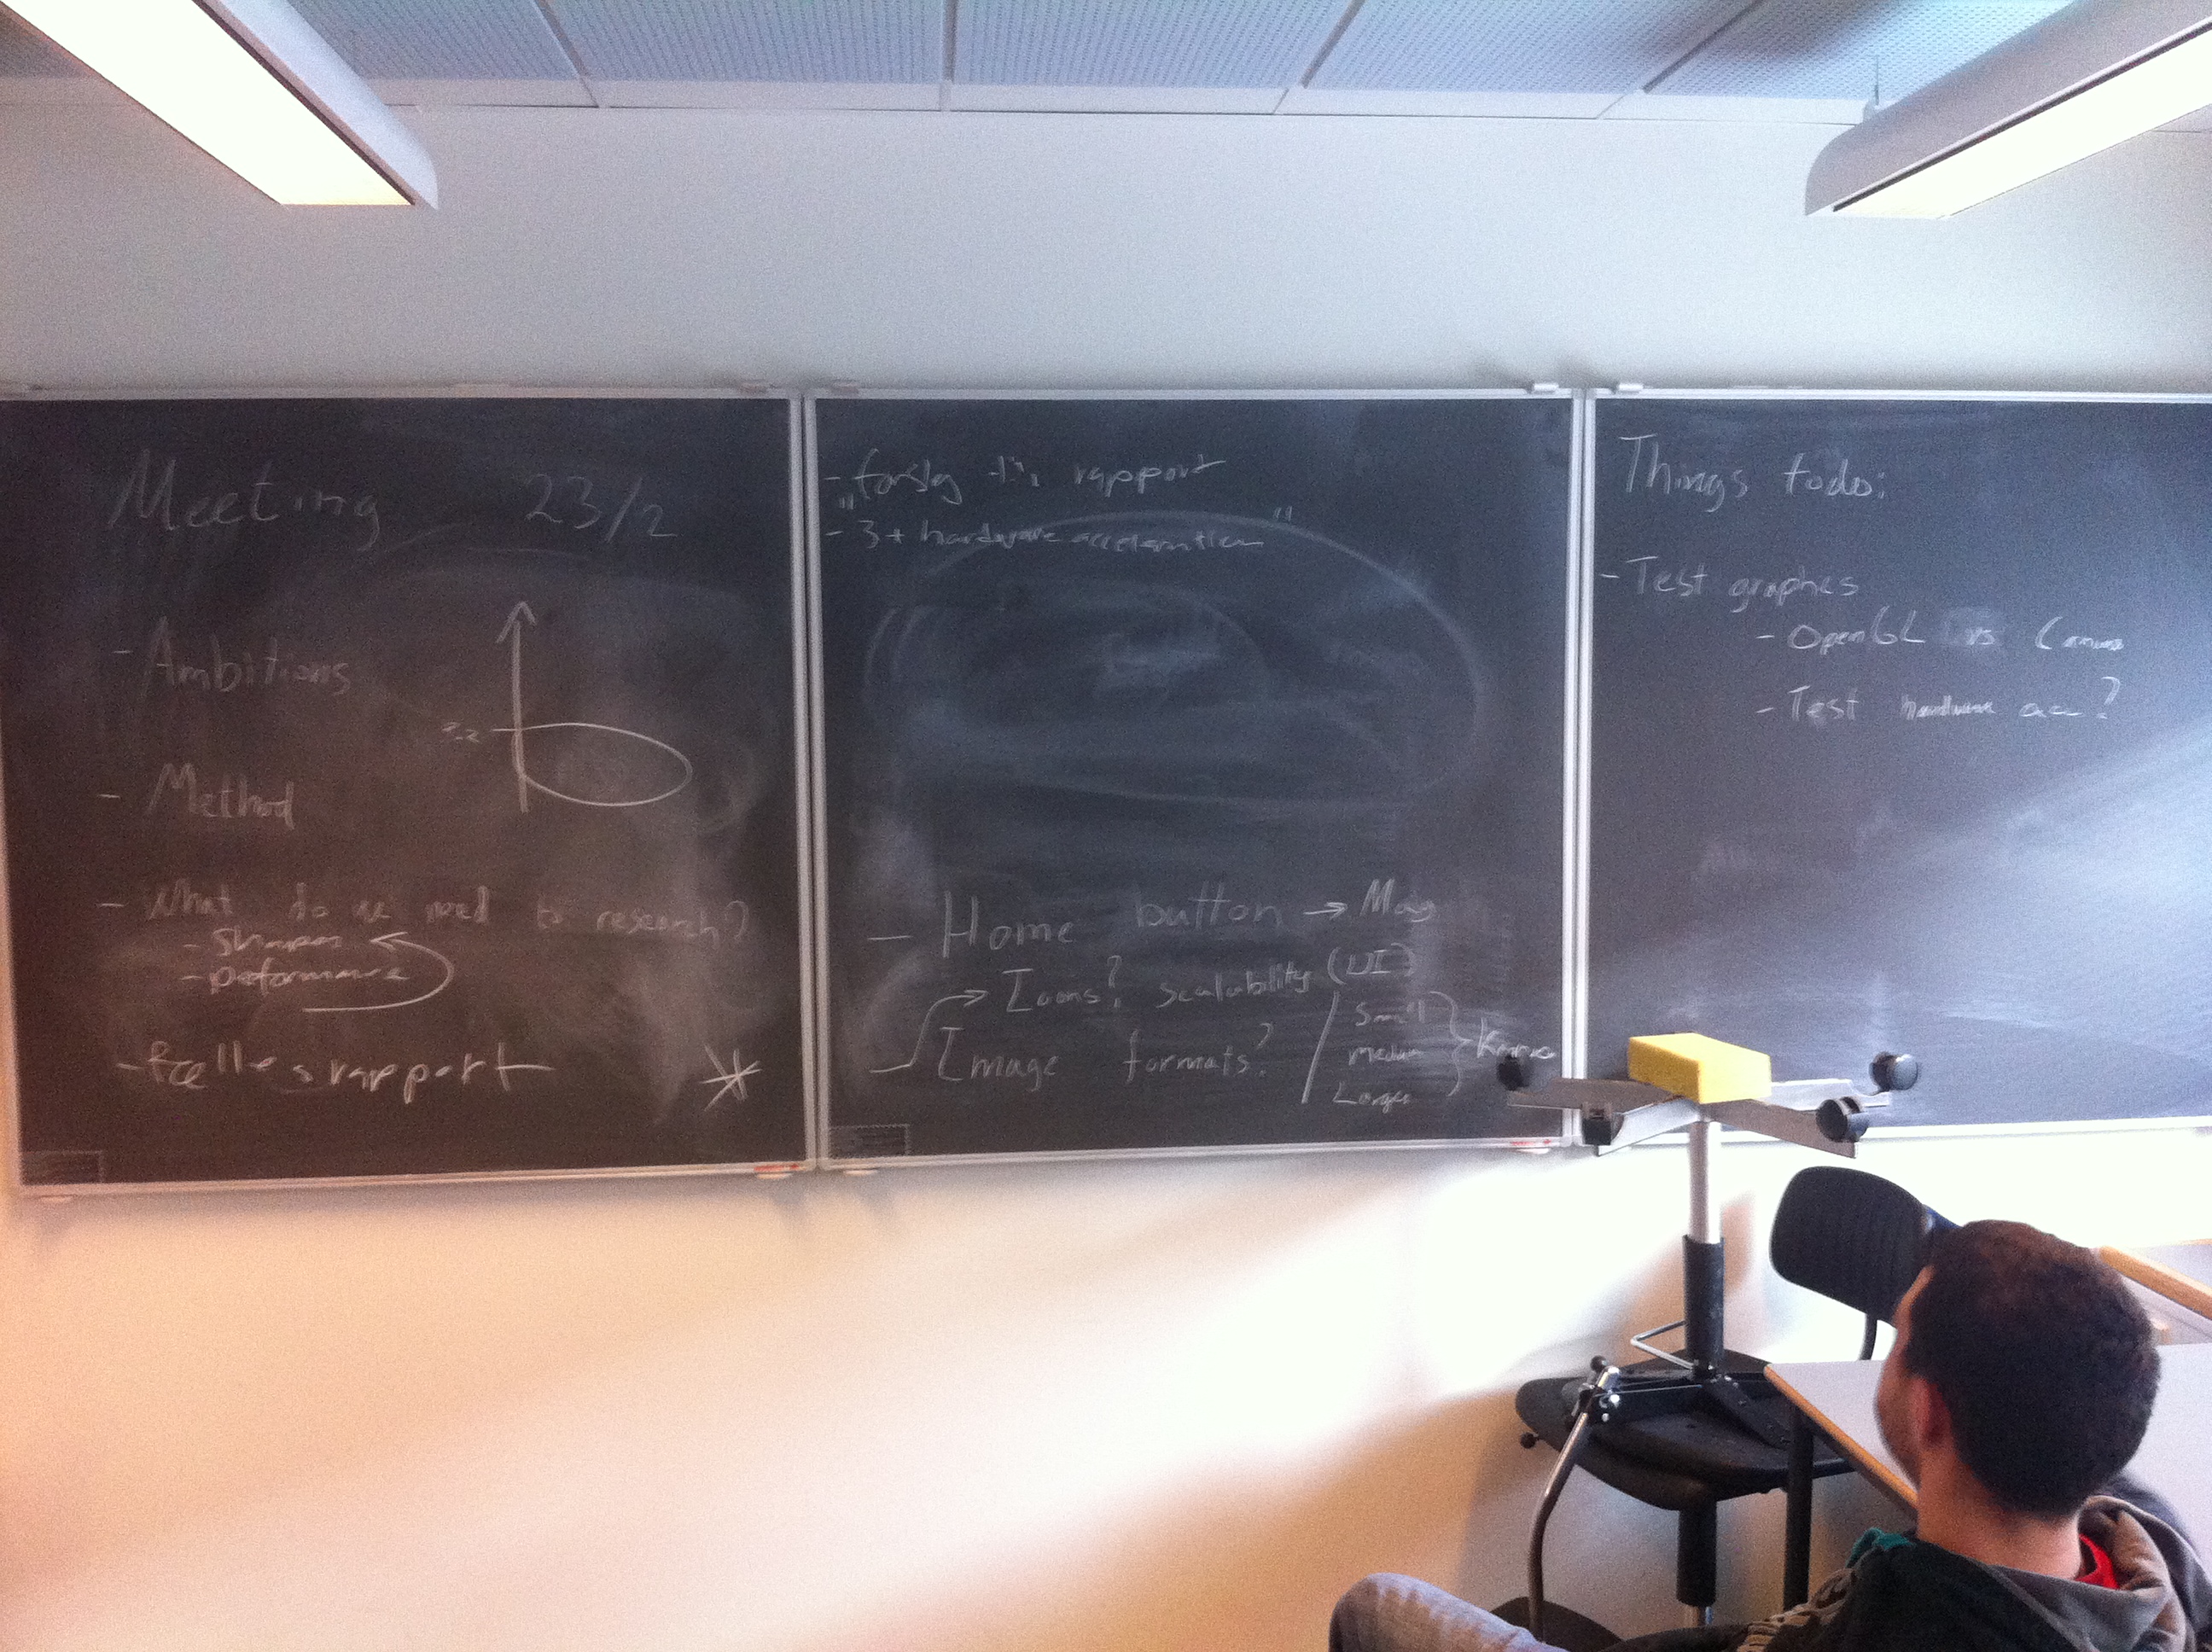 Meeting 23/2
- Ambitions
- Method
- What do we need to research?
- performance
rapport
- rapport
- 3+ hardware acceleration"
- Home button →
→ Icons? scalability (UI)
Image formats? / Small
medium
Large
Things todo:
- Test graphcs
- OpenGL vs
- Test hardware acc?